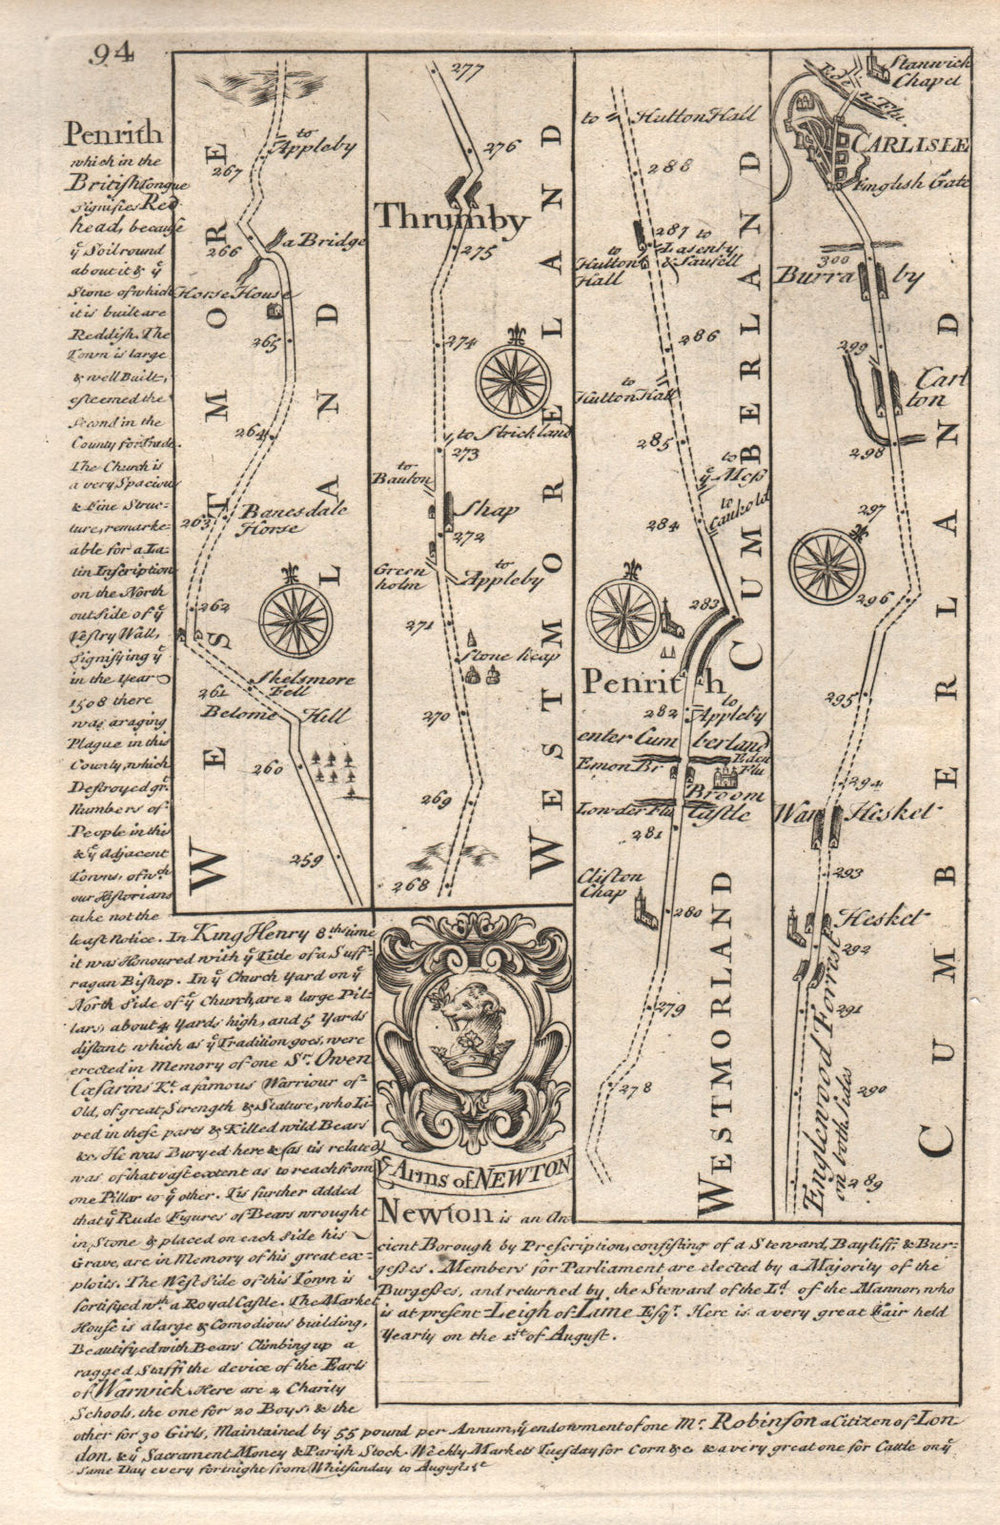 94
Penrith
which in the
British tongue
signifies Red
head, because
yͤ Soil round
about it & yͤ
Stone of which
it is built are
Reddish. The
Town is large
& well Built,
esteemed the
Second in the
County for trade.
The Church is
a very Spacious
& Fine Struc-
ture, remarke-
able for a La-
tin Inscription
on the North
outside of yͤ
Vestry Wall,
Signifying yͤ
in the Year
1508 there
was a raging
Plague in this
County, which
Destroyed gr.
Numbers of
People in this
& yͤ Adjacent
Towns, of wᶜʰ
our Historians
take not the
least Notice. In King Henry 8.ᵗʰˢ time
it was Honoured with yͤ Title of a Suff-
ragan Bishop. In yͤ Church Yard on yͤ
North Side of yͤ Church, are 2 large Pil-
lars, about 4 Yards high, and 5 Yards
distant, which as yͤ Tradition goes, were
erected in Memory of one Sʳ. Owen
Cæsarius Kᵗ. a famous Warriour of
Old, of great Strength & Stature, who Li-
ved in these parts & Killed wild Bears
&c. He was Buryed here & (as tis related)
was of that vast extent as to reach from
one Pillar to yͤ other. Tis further added
that yͤ Rude Figures of Bears wrought
in Stone & placed on each side his
Grave, are in Memory of his great ex-
ploits. The West Side of this Town is
fortifyed wᵗʰ a Royal Castle. The Market
House is a large & Comodious building,
Beautifyed with Bears Climbing up a
ragged Staff, the device of the Earls
of Warwick. Here are 2 Charity
Schools, the one for 20 Boys, & the
other for 30 Girls, Maintained by 55 pound per Annum, yͤ endowment of one Mʳ. Robinson a Citizen of Lon-
don, & yͤ Sacrament Money & Parish Stock. Weekly Markets Tuesday for Corn &c. & a very great one for Cattle on yͤ
same Day every fortnight from Whitsunday to August 1ˢᵗ
WESTMORELAND
to Appleby
267
266
a Bridge
Horse House
265
264
263
Banesdale
Horse
262
261
Skelsmore
Fell
Belome Hill
260
259
277
276
Thrumby
275
274
to Strickland
273
to
Banton
Shap
272
Green
holm
to
Appleby
271
Stone heap
270
269
268
WESTMORELAND
yͤ Arms of NEWTON
Newton is an An-
cient Borough by Prescription, consisting of a Steward, Bayliff, & Bur-
gesses. Members for Parliament are elected by a Majority of the
Burgesses, and returned by the Steward of the Lᵈ. of the Mannor, who
is at present Leigh of Lame Esqʳ. Here is a very great Fair held
Yearly on the 1ˢᵗ of August.
to Hutton Hall
288
287
to
Lasenby
& Saufell
to
Hutton
Hall
286
to
Hutton Hall
285
to
yͤ Mess
284
to
Caukold
283
Penrith
282
to
Appleby
enter Cumberland
Emon Br
Eden
Flu
Broom
Castle
Lowder Flu
281
Clifton
Chap
280
279
278
CUMBERLAND
WESTMORLAND
Stanwick
Chapel
Flu.
CARLISLE
English Gate
300
Burra by
299
Carl
ton
298
297
296
295
294
Wan Hesket
293
Hesket
292
291
290
289
Englewood Forrest
on both Sides
CUMBERLAND